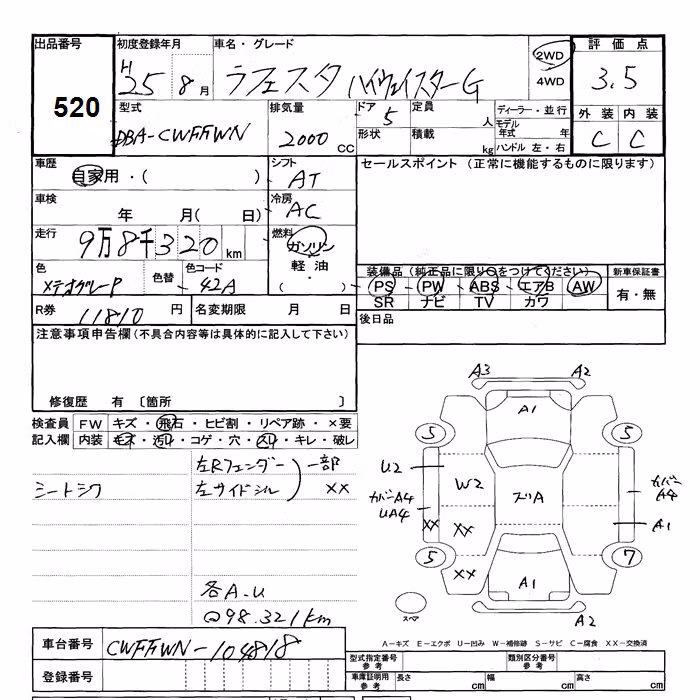 出品番号 初度登録年月 車名・グレード 評価点
520 H25 8月 ラフェスタ ハイウェイスターG 2WD 4WD 3.5
型式 排気量 ドア 定員 ディーラー・並行 外装 内装
DBA-CWFFWN 2000cc 5 人 モデル年式 年 C C
形状 積載 kg ハンドル 左・右
車歴 シフト セールスポイント (正常に機能するものに限ります)
自家用・( ) AT
車検 冷房
年 月( 日) AC
走行 燃料
9万8千320km ガソリン
軽油
( )
色 色替 色コード 装備品(純正品に限り○をつけてください) 新車保証書
メテオグレーP 42A PS・PW・ABS・エアB AW 有・無
SR ナビ TV カワ
R券 11810円 名変期限 月 日 後日品
注意事項申告欄(不具合内容等は具体的に記入して下さい)
修復歴 有 〔箇所 〕
検査員 FW キズ・飛石・ヒビ割・リペア跡・×要
記入欄 内装 キズ・汚れ・コゲ・穴・スレ・キレ・破レ
左Rフェンダー 一部
シートシワ 左サイドシル ××
各A.U
@98.321km
A3 A2
A1
5 5
U2 W2 ズリA カバーA4
カバーA4
UA4 ×× ×× A1
5 7
××
A1
スペア A2
A-キズ E-エクボ U-凹み W-補修跡 S-サビ C-腐食 XX-交換済
車台番号 CWFFWN-104818
登録番号
型式指定番号 参考 類別区分番号 参考
車庫証明用 参考 長さ cm 幅 cm 高さ cm